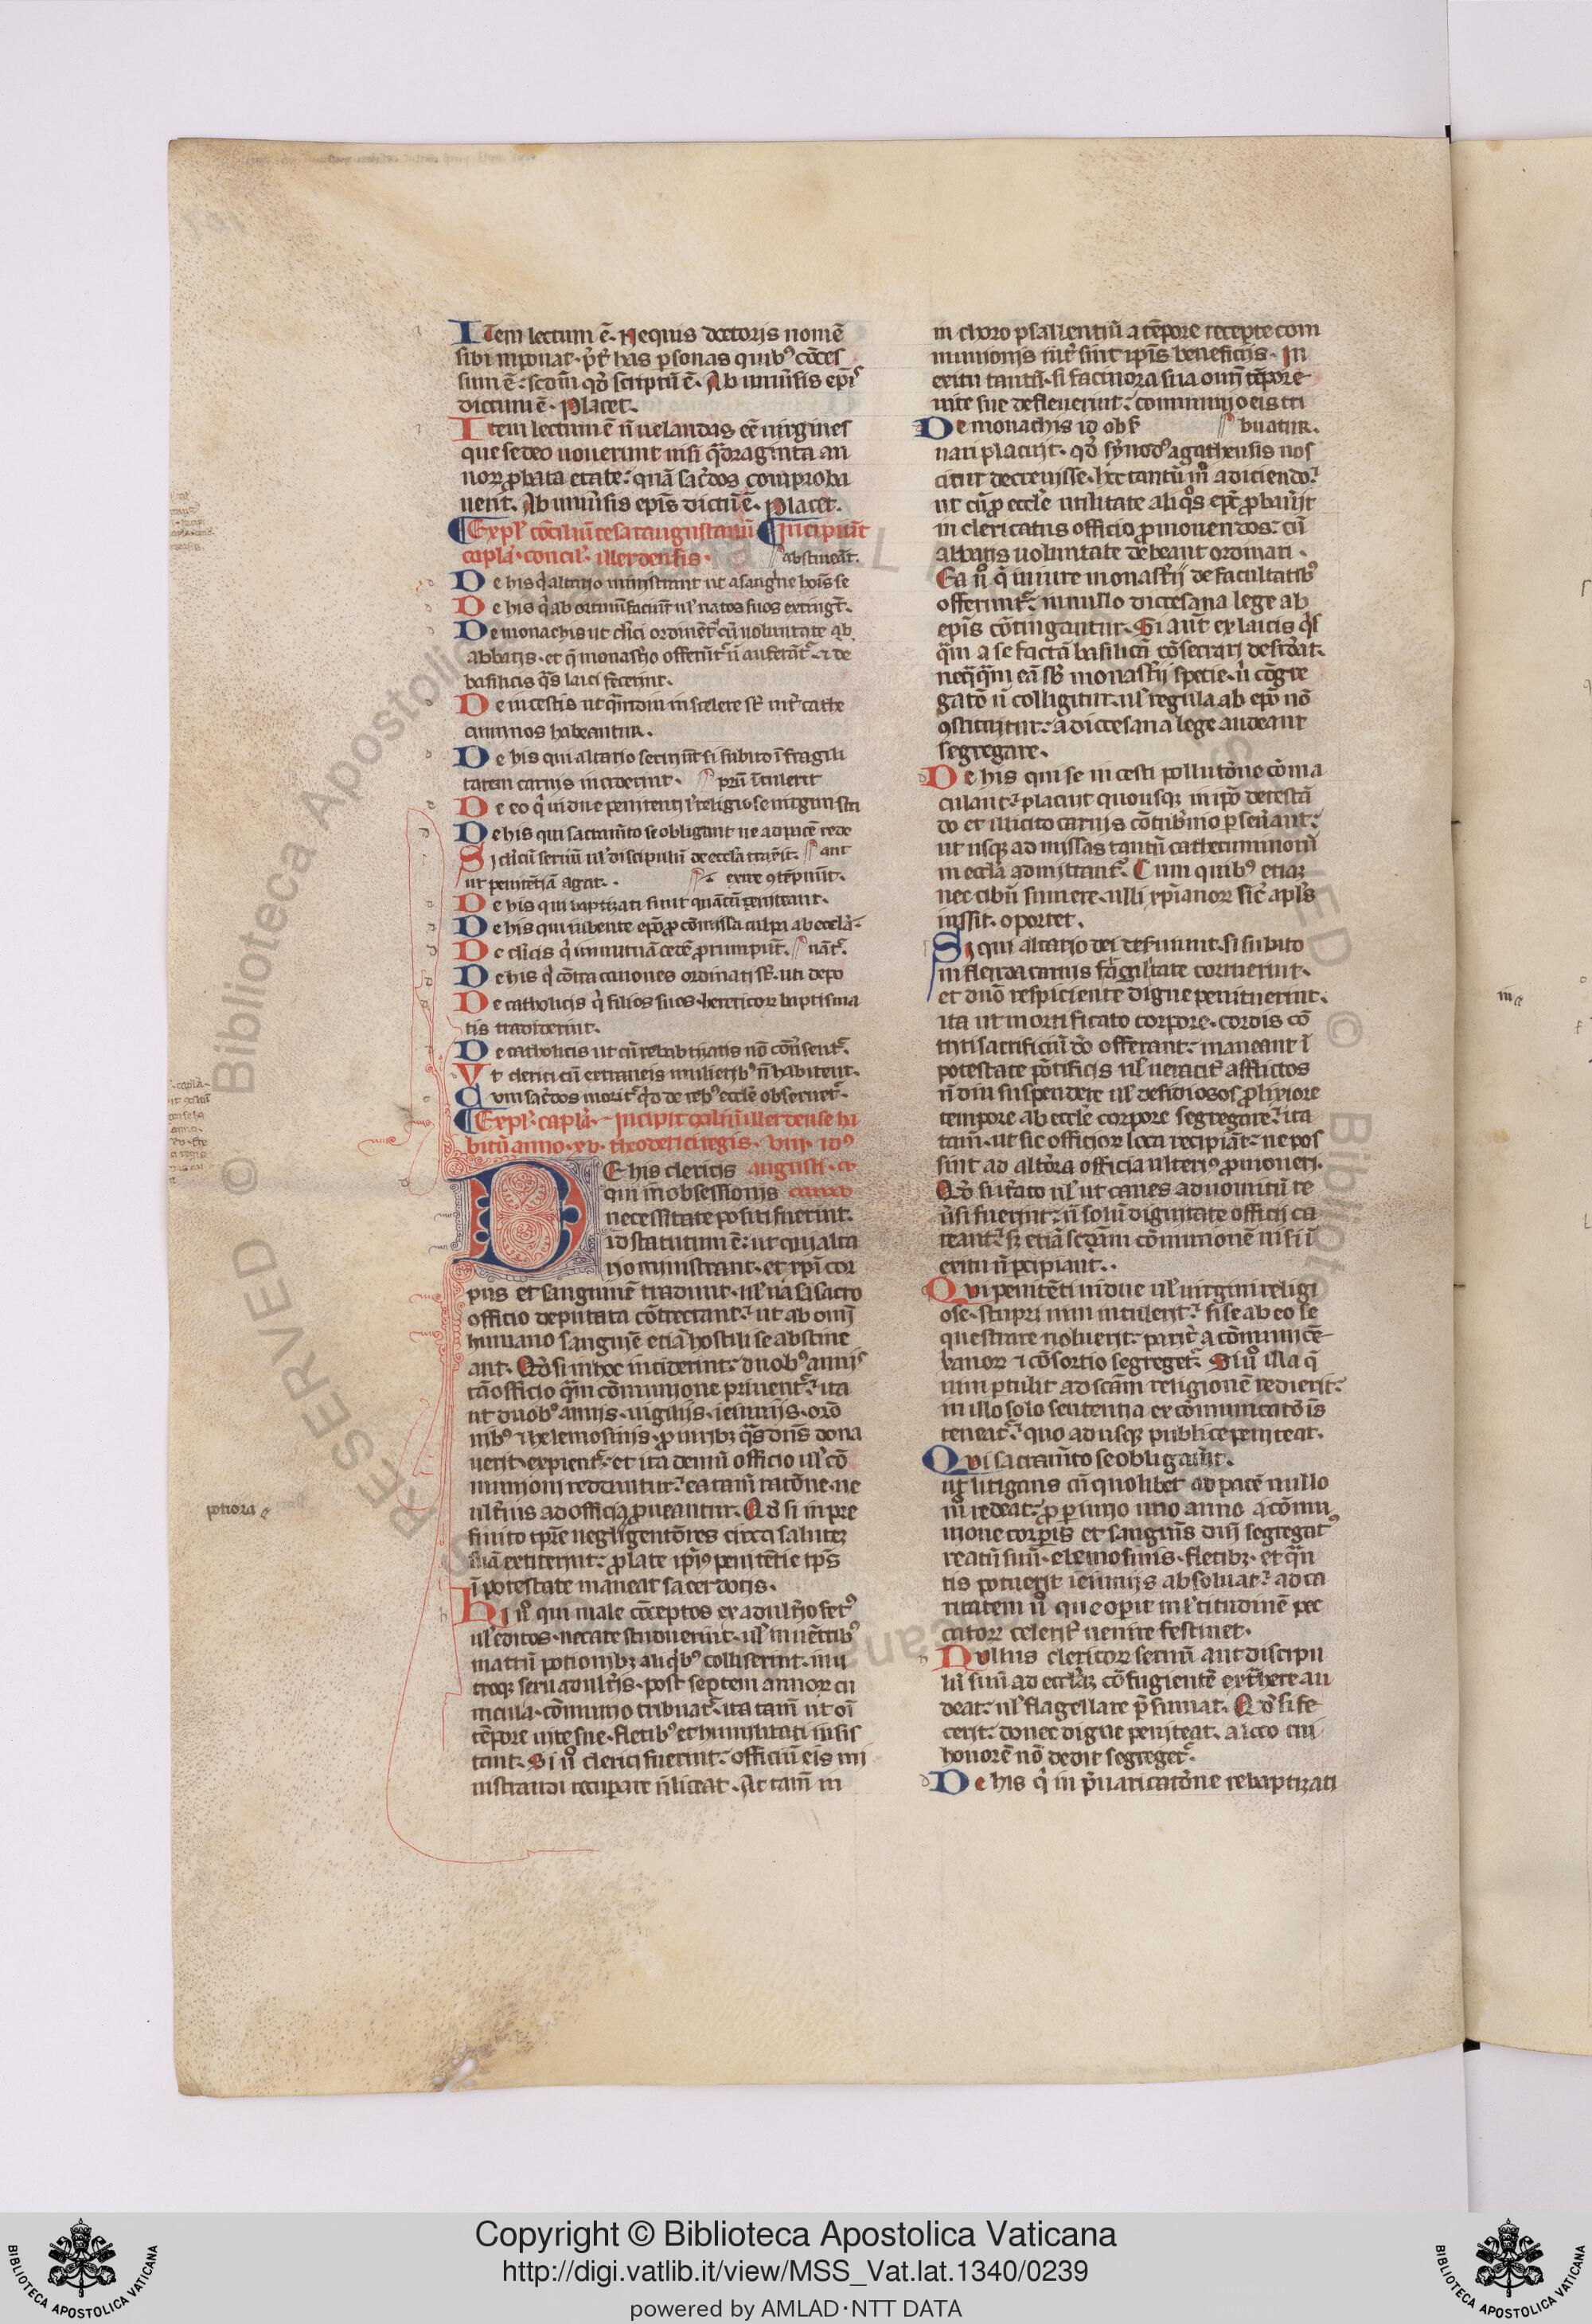 Item lectum ē. Nequis doctoris nomē
sibi inponat. p̄t̄ has p̲sonas quib⁹ cōces
sum ē: scd̄m qd̄ sc̄riptū ē. Ab uniuẜis ep̄is
dictum ē. Placet.
Item lectum ē ñ uelandas eē uirgines
que se deo uouerint nisi q̄draginta an
noꝝ ꝓbata etate: quā sac̄dos comproba
uerit. Ab uniuẜis ep̄is dictū ē. Placet.
Expl̄ cōciliū cesaraugustanū Incipiūt
capl̄a. concil̄. illerdensis.
abstineāt.
De his q̄ altario ministrant ut a sanguīe hoīs se
De his q̄ abortiuū faciūt ul̄ natos suos extingt̄.
De monachis ut cl̄ici ordinēt̄ cū uoluntate ab
abbatis. et q̄ monast̄io offerūt̄ ñ auferāt̄. ⁊ de
basilicis q̄s laici fecerint.
De incestis ut q̄mdiu in scelere st̄ int̄ cathe
cuminos habeantur.
De his qui altario seruiūt si subito ī fragili
tatem carnis inciderint.
prū ītulerit
De eo q̄ uidue penitenti ul̄ religiose uirgini stu
De his qui sacram̄to se obligant ne ad pacē rede
Si cl̄icū seruū ul̄ discipulū de eccl̄a traxit. ant
ut penitētiā agat.
De his qui baptizati sunt quātū peniteant.
De his qui iubente ep̄o ꝓ cōmissa culpa ab eccl̄a
exire ↄtēpnūt.
De cl̄icis q̄ in mutuā cedē ꝓrumpūt.
nāt̄.
De his q̄ cōtra canones ordinati st̄. uti depo
De catholicis q̄ filios suos hereticoꝝ baptisma
tis tradiderint.
De catholicis ut cū rebabtizatis nō cōuẽsent̄.
Vt clerici cū extraneis mulierib⁹ ñ habitent.
Cum sac̄dos morit̄ q̄d de reb⁹ eccl̄e obseruet̄.
Expl̄ capl̄a. Incipit ↄciliū illerdense ha
bitū anno. xv. theoderici regis. viii. id⁹
augusti.
De his clericis
qui in obsessionis
necessitate positi fuerint.
id statutum ē: ut qui alta
rio ministrant. et xp̄i cor
pus et sanguinē tradunt. ul̄ uasa sacro
officio deputata cōtrectant: ut ab omī
humano sanguīe etiā hostili se abstine
ant. Qd̄ si in hoc inciderint: duob⁹ annis
tā officio q̄m cōmunione priuent̄. ita
ut duob⁹ annis. uigiliis. ieiuniis. orō
nib⁹ ⁊ helemosinis. ꝓ uirib⁹ q̄s dn̄s dona
uerit expient̄. et ita demū officio ul̄ cō
munioni reddantur: ea tam̄ ratōne. ne
ult̄ius ad officia ꝓueantur. Qd̄ si in pre
finito tp̄re negligentiores circa salutem
suā extiterint: ꝓlate ip̄i⁹ penitētie tp̄s
ī potestate maneat sacerdotis.
Hi ũo qui male cōceptos ex adult̄io fet⁹
ul̄ editos. necare studuerint. ul̄ in uētrib⁹
matrū potionib⁹ aliq̄b⁹ colliserint. in u
troq; sexu adult̄is. post septem annoꝝ cu
ricula. cōmunio tribuat̄. ita tam̄ ut oī
tēpore uite sue. fletib⁹ et humilitati insis
tant. Si ũo clerici fuerint: officiū eis mi
nistrandi recuperare ñ liceat. At tam̄ in
in choro psallentiū a tēpore recepte com
munionis int̄ sint ip̄is beneficiis. In
exitu tantū. si facinora sua omī tēpore
uite sue defleuerint: communio eis tri
buatur.
De monachis id obs̄
uari placuit. qd̄ synod⁹ agathensis nos
citur decreuisse. hec tantūm̄ adiciendo:
ut cū ꝓ eccl̄e utilitate aliq̄s ep̄c ꝓbauĩt
in clericatus officio ꝓmouendos: cū
abbatis uoluntate debeant ordinari.
Ea ũo q̄ in iure monast̄ii de facultatib⁹
offerunt̄: in nullo diocesana lege ab
ep̄is cōtingantur. Si aut̄ ex laicis q̄s
q̄m a se factā basilicā cōsecrari desid̄at.
neq̄q̄m eā sb̄ monast̄ii specie. ubi cōgre
gatō ñ colligitur. ul̄ regula ab ep̄o nō
ↄstituitur: a diocesana lege audeant
segregare.
De his qui se incesti pollutōne cōma
culant: placuit quousq; in ip̄o detestā
do et illicito carnis cōtub̄nio p̲seũant:
ut usq; ad missas tantū cathecuminorū
in eccl̄a admittant̄. Cum quib⁹ etiaꝫ
nec cibū sumere. ulli xp̄ianoꝝ sic̄ apl̄s
iussit. oportet.
Si qui altario dei deẜuiunt. si subito
in flenda carnis fragilitate corruerint.
et dn̄o respiciente digne penituerint.
ita ut mortificato corpore. cordis cō
triti sacrificiū dō offerant: maneant ī
potestate pōtificis ul̄ ueracit̄ afflictos
ñ diu suspendere ul̄ desidiosos ꝓlixiore
tempore ab eccl̄e corpore segregare: ita
tam̄. ut sic officioꝝ loca recipiāt: ne pos
sint ad altiora officia ulteri⁹ ꝓmoueri.
Qd̄ si it̄ato ul̄ ut canes ad uomitū re
uẽsi fuerint: ñ solū dignitate officii ca
reant: sꝫ etiā sc̄am cōmunionē nisi ī
exitu ñ p̲cipiant.
Qui penitēti uidue ul̄ uirgini religi
ose. stupri uim intulerit: si se ab eo se
questrare noluerit: parit̄ a cōmunicē
tianoꝝ ⁊ cōsortio segreget̄. Si ũo illa q̄
uim p̲tulit ad sc̄am religionē redierit:
in illo solo sententia ex cōmunicatōis
teneat̄: quo ad usq; publice peniteat.
Qui sacram̄to se obligauĩt.
ut litigans cū quolibet ad pacē nullo
m̄ redeat: ꝓ periurio uno anno a cōmu
nione corporis et sanguīs dn̄i segregat⁹
reatū suū. elemosinis. fletib⁹. et q̄n
tis potuerit ieiuniis absoluat: ad ca
ritatem ũo que operit ml̄titudinē pec
catoꝝ celerit̄ uenire festinet.
Nullus clericoꝝ seruū aut discipu
lū suū ad eccl̄iā cōfugientē ext̄here au
deat: ul̄ flagellare p̄sumat. Qd̄ si fe
cerit: donec digne peniteat. a loco cui
honorē nō dedit segreget̄.
De his q̄ in p̄uaricatōne rebaptizati
potiora
Copyright © Biblioteca Apostolica Vaticana
http://digi.vatlib.it/view/MSS_Vat.lat.1340/0239
powered by AMLAD·NTT DATA